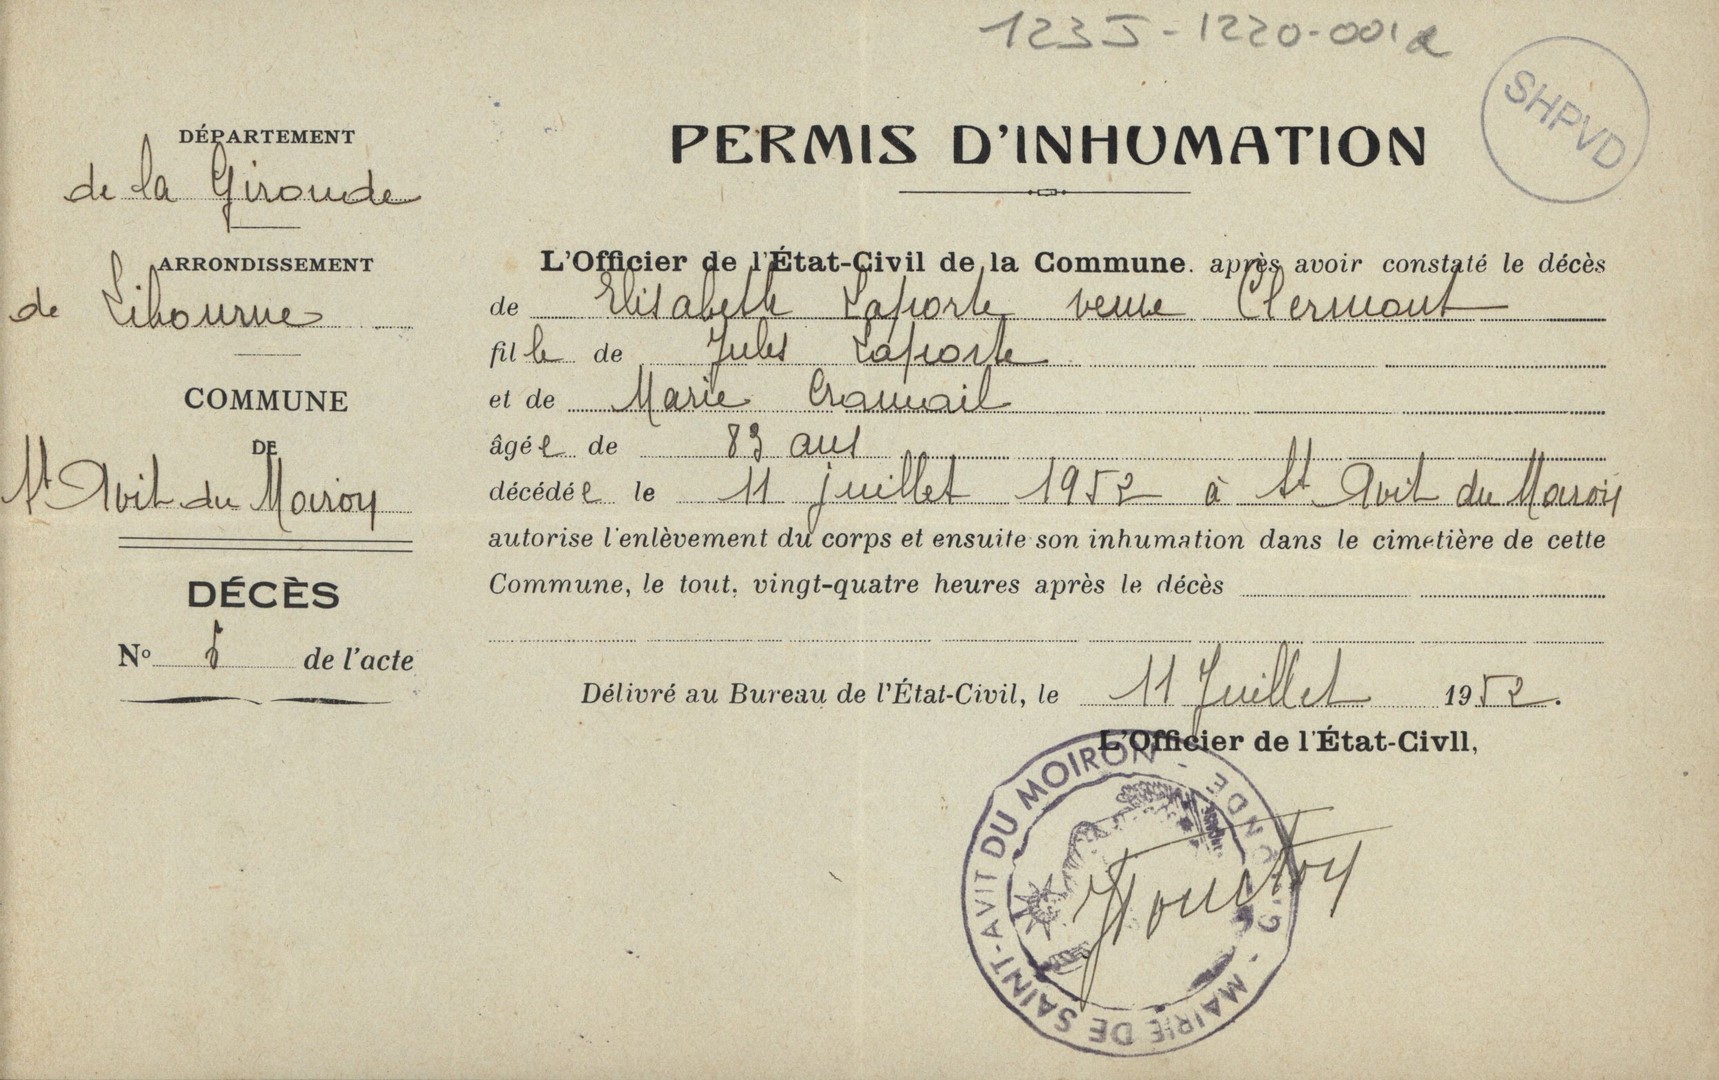 123J-1220-001a
SHPVD
DÉPARTEMENT
de la Gironde
ARRONDISSEMENT
de Libourne
COMMUNE
DE
St Avit du Moiron
DÉCÈS
No 5 de l'acte
PERMIS D'INHUMATION
L'Officier de l'État-Civil de la Commune. après avoir constaté le décès
de Elisabeth Laporte veuve Clermont
fille de Jules Laporte
et de Marie Cramail
âgée de 83 ans
décédée le 11 juillet 1952 à St Avit du Moiron
autorise l'enlèvement du corps et ensuite son inhumation dans le cimetière de cette
Commune, le tout, vingt-quatre heures après le décès
Délivré au Bureau de l'État-Civil, le 11 Juillet 1952.
L'Officier de l'État-Civll,
MAIRIE DE SAINT-AVIT DU MOIRON - GIRONDE -